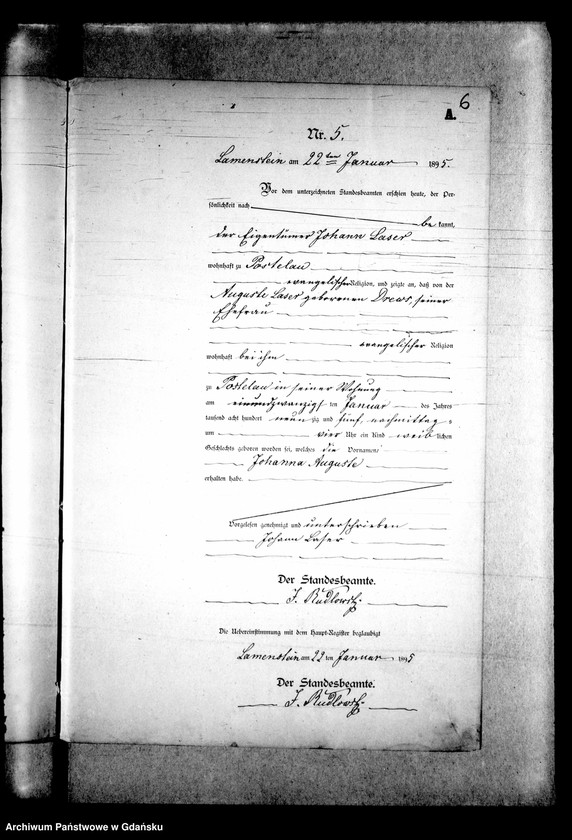 6
A.
Nr. 5.
Lamenstein am 22ten Januar 1895.
Vor dem unterzeichneten Standesbeamten erschien heute, der Per-
sönlichkeit nach
be kannt,
der Eigentümer Johann Laser
wohnhaft zu Postelau
evangelischer Religion, und zeigte an, daß von der
Auguste Laser geborenen Drews, seiner
Ehefrau
evangelischer Religion
wohnhaft bei ihm
zu Postelau in seiner Wohnung
am einundzwanzigsten Januar des Jahres
tausend acht hundert neunzig und fünf, nachmittags
um vier Uhr ein Kind weiblichen
Geschlechts geboren worden sei, welches die Vornamen
Johanna Auguste
erhalten habe.
Vorgelesen, genehmigt und unterschrieben
Johann Laser
Der Standesbeamte.
Die Uebereinstimmung mit dem Haupt-Register beglaubigt
Lamenstein am 22ten Januar 1895
Der Standesbeamte.
Archiwum Państwowe w Gdańsku